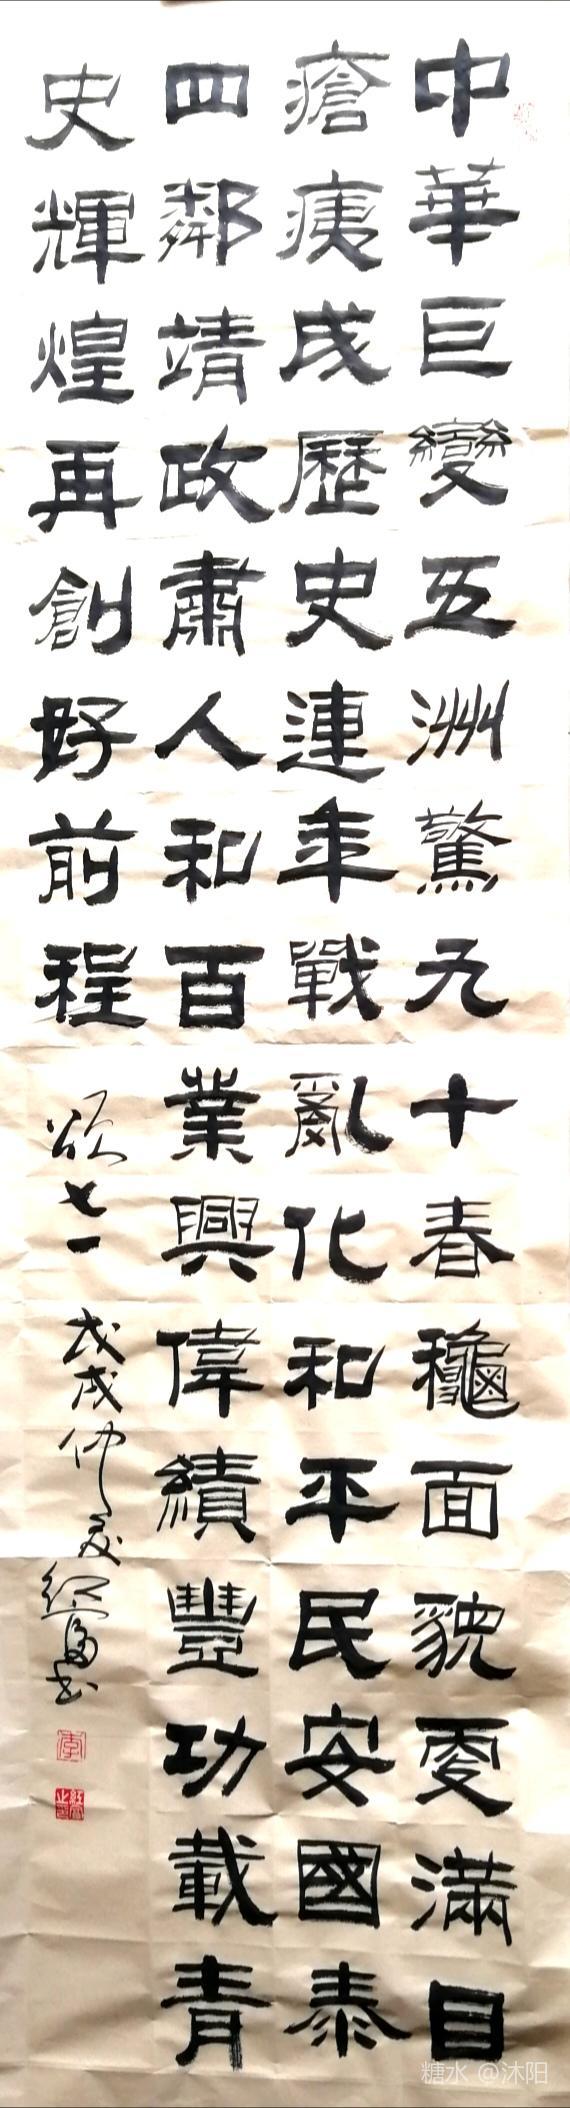 中華巨變五洲驚九十春龝面貌更滿目
瘡痍成歷史連年戰亂化和平民安國泰
四鄰靖政肅人和百業興偉績豐功載青
史輝煌再創好前程
頌七一
戊戌仲夏紅鳥书
糖水 @沐阳